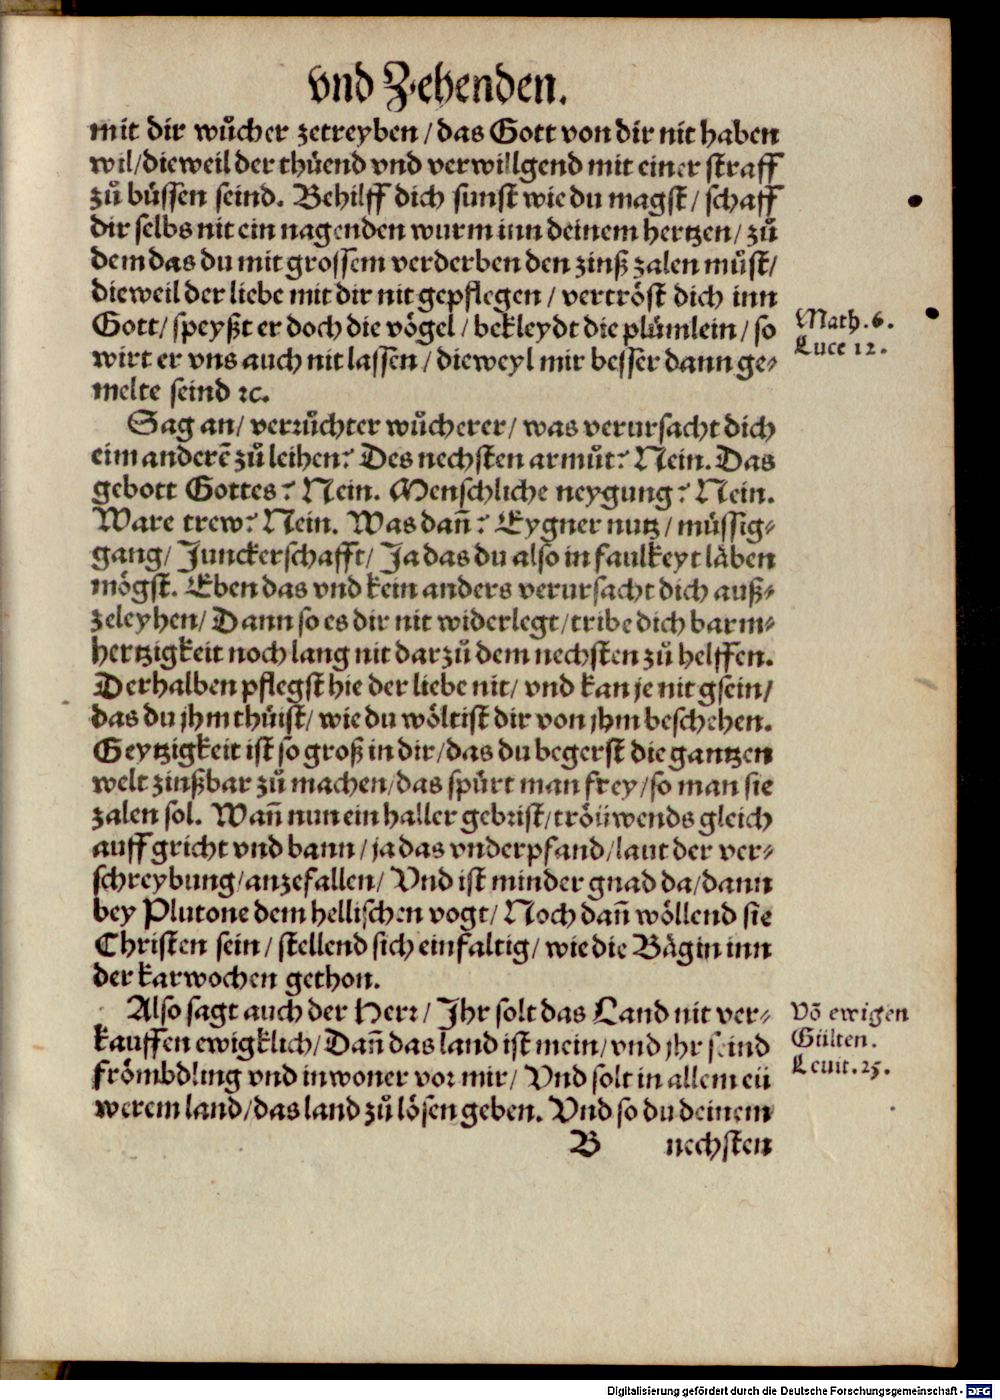 vnd Zehenden.
mit dir wůcher zetreyben / das Gott von dir nit haben
wil / dieweil der thuͤend vnd verwillgend mit einer straff
zů buͤssen seind. Behilff dich sunst wie du magst / schaff
dir selbs nit ein nagenden wurm inn deinem hertzen / zů
dem das du mit grossem verderben den zinß zalen můst /
dieweil der liebe mit dir nit gepflegen / vertroͤst dich inn
Gott / speyßt er doch die voͤgel / bekleydt die pluͤmlein / so
wirt er vns auch nit lassen / dieweyl mir besser dann ge⸗
melte seind ꝛc.
Math. 6.
Luce 12.
Sag an / verrůchter wůcherer / was verursacht dich
eim anderẽ zů leihen? Des nechsten armůt? Nein. Das
gebott Gottes? Nein. Menschliche neygung? Nein.
Ware trew? Nein. Was dañ? Eygner nutz / muͤssig⸗
gang / Junckerschafft / Ja das du also in faulkeyt laͤben
moͤgst. Eben das vnd kein anders verursacht dich auß⸗
zeleyhen / Dann so es dir nit widerlegt / tribe dich barm⸗
hertzigkeit noch lang nit darzů dem nechsten zů helffen.
Derhalben pflegst hie der liebe nit / vnd kan je nit gsein /
das du jhm thuͤist / wie du woͤltist dir von jhm beschehen.
Geytzigkeit ist so groß in dir / das du begerst die gantzen
welt zinßbar zů machen / das spürt man frey / so man sie
zalen sol. Wañ nun ein haller gebrist / troͤüwends gleich
auff gricht vnd bann / ja das vnderpfand / laut der ver⸗
schreybung / anzefallen / Vnd ist minder gnad da / dann
bey Plutone dem hellischen vogt / Noch dañ woͤllend sie
Christen sein / stellend sich einfaltig / wie die Baͤgin inn
der karwochen gethon.
Also sagt auch der Herr / Ihr solt das Land nit ver⸗
kauffen ewigklich / Dañ das land ist mein / vnd jhr seind
froͤmbdling vnd inwoner vor mir / Vnd solt in allem eü
werem land / das land zů loͤsen geben. Vnd so du deinem
Võ ewigen
Gülten.
Leuit. 25.
B nechsten
Digitalisierung gefördert durch die Deutsche Forschungsgemeinschaft - DFG